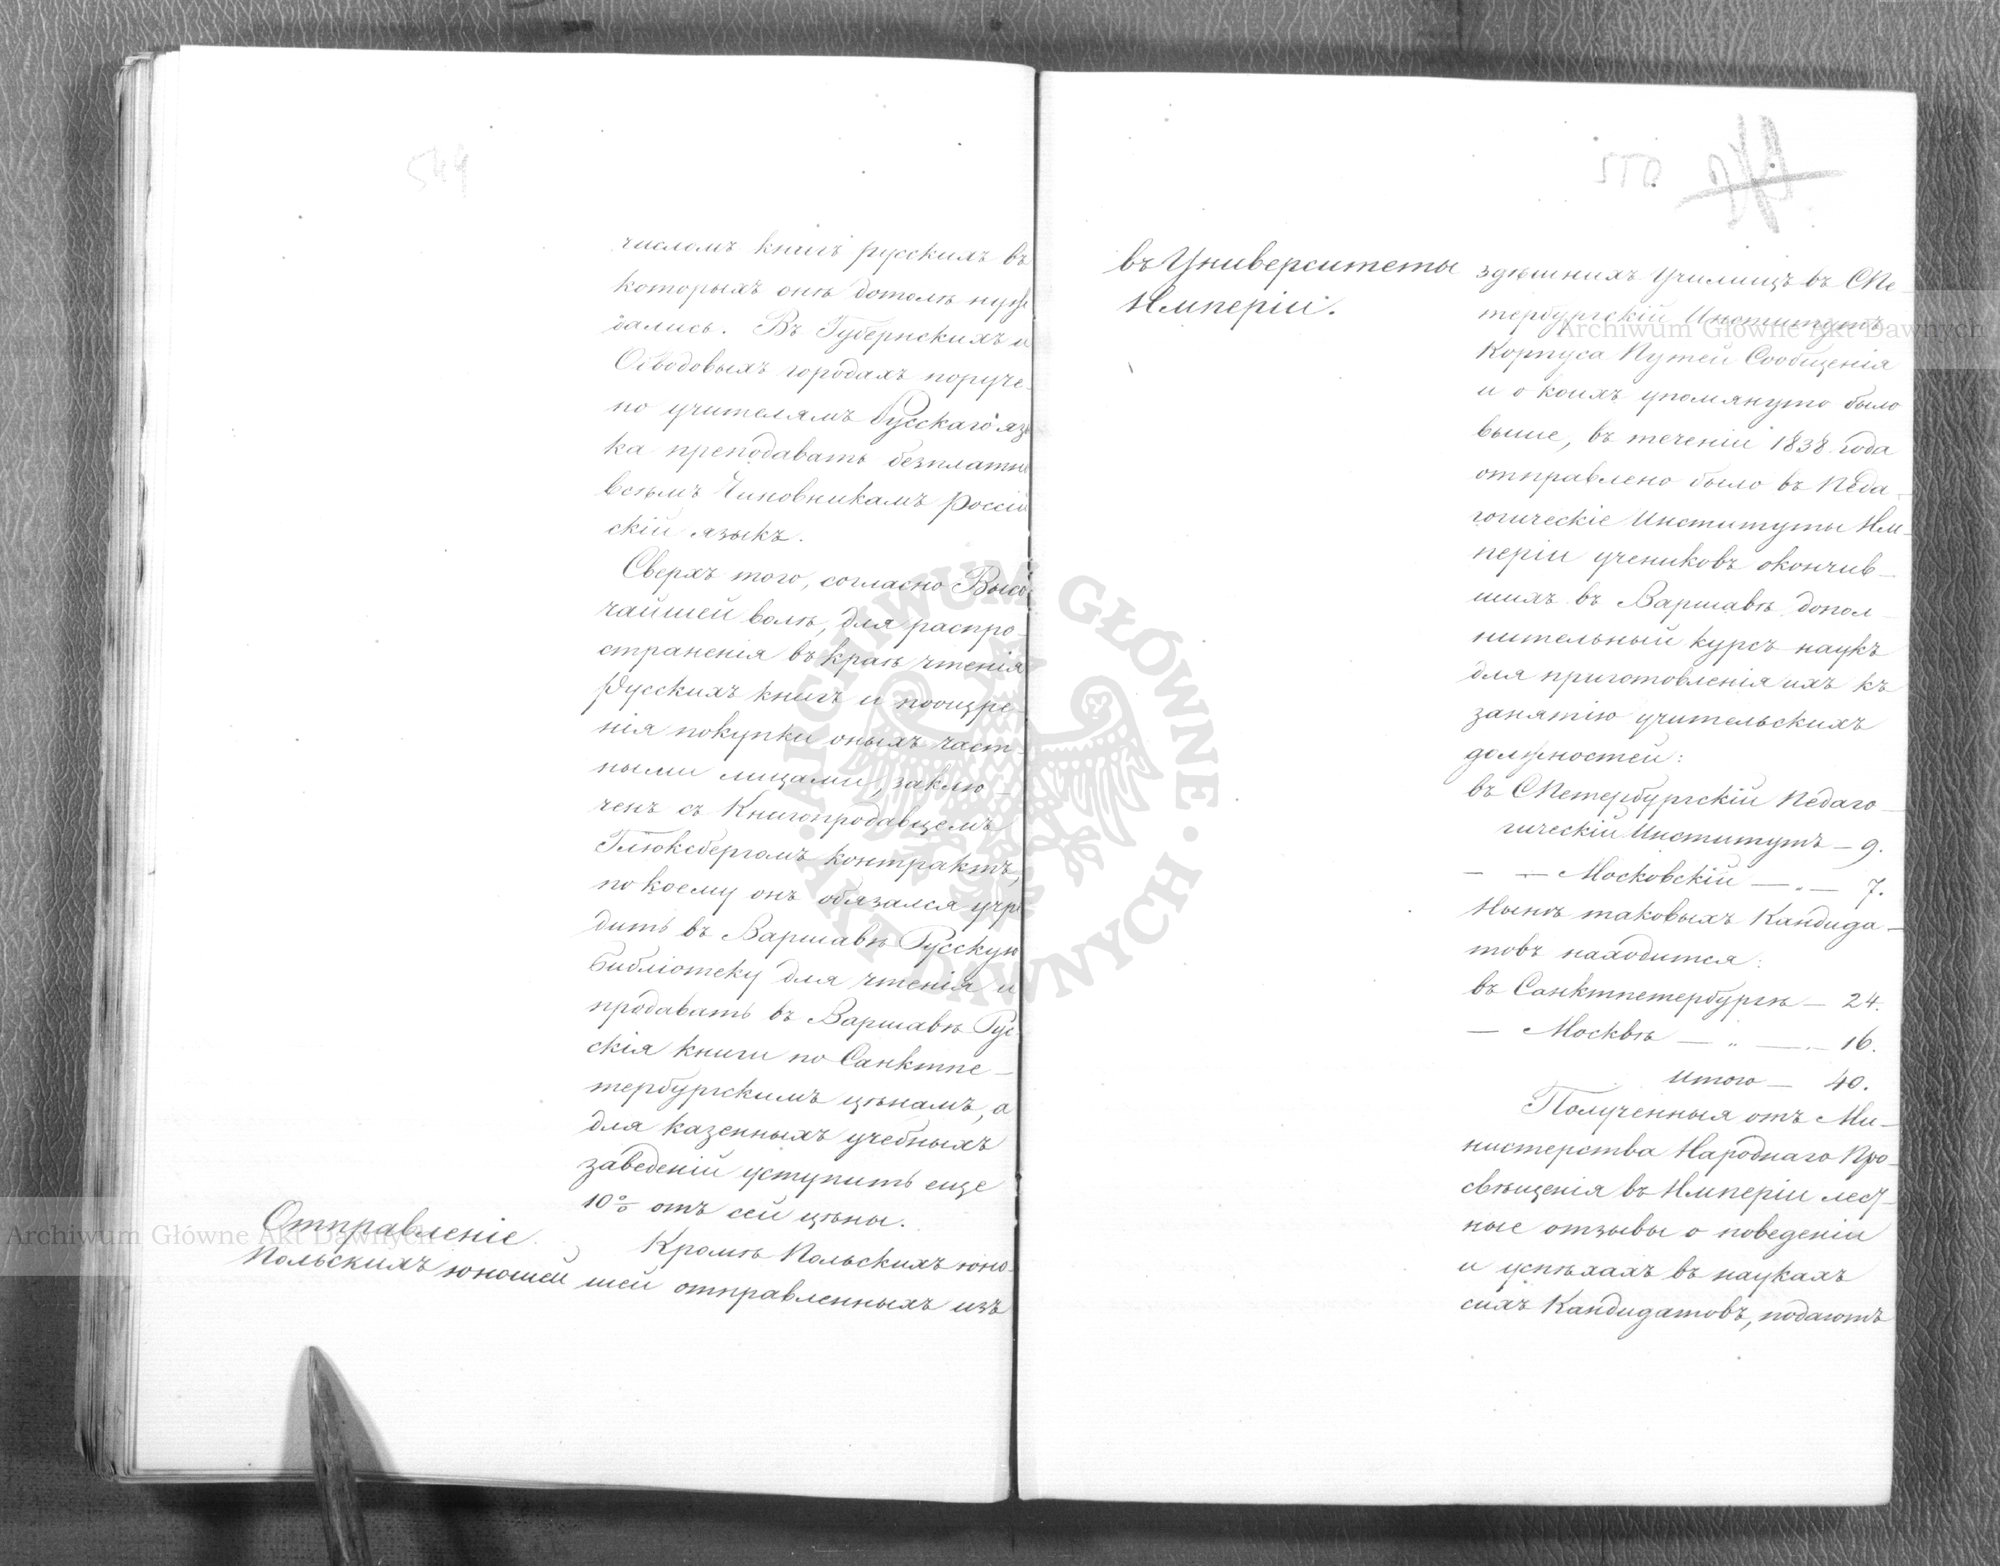 549
числомъ книгъ русскихъ въ
которыхъ онѣ дотолѣ нуж
дались. Въ Губернскихъ и
Обводовыхъ городахъ поруче-
но учителямъ Русскаго язы
ка преподавать безплатно
всѣмъ Чиновникамъ Россій
скій языкъ.
Сверхъ того, согласно Высо
чайшей волѣ, для распро-
страненія въ краѣ чтенія
Русскихъ книгъ и поощре-
нія покупки оныхъ част-
ными лицами, заклю-
ченъ съ Книгопродавцемъ
Глюксбергомъ контрактъ,
по коему онъ обязался учре
дить въ Варшавѣ Русскую
библіотеку для чтенія и
продавать въ Варшавѣ Рус
скія книги по Санктпе-
тербургскимъ цѣнамъ, а
для казенныхъ учебныхъ
заведеній уступить еще
10% отъ сей цѣны.
Отправленіе
Польскихъ юношей
Кромѣ Польскихъ юно-
шей отправленныхъ изъ
550
въ Университеты
Имперіи.
здѣшнихъ Училищъ въ СПе-
тербургскій Институтъ
Корпуса Путей Сообщенія
и о коихъ упомянуто было
выше, въ теченіи 1838 года
отправлено было въ Педа-
гогическіе Институты Им-
періи учениковъ окончив-
шихъ въ Варшавѣ допол-
нительный курсъ наукъ
для приготовленія ихъ къ
занятію учительскихъ
должностей:
въ СПетербургскій Педаго-
гическій Институтъ – 9.
— — Московскій — „ — 7.
Нынѣ таковыхъ Кандида-
товъ находится:
въ Санктпетербургѣ – 24.
— Москвѣ — „ — 16.
Итого — 40.
Полученныя отъ Ми-
нистерства Народнаго Про-
свѣщенія въ Имперіи лест-
ные отзывы о поведеніи
и успѣхахъ въ наукахъ
сихъ Кандидатовъ, подаютъ
Archiwum Główne Akt Dawnych
Archiwum Główne Akt Dawnych
ARCHIWUM GŁÓWNE · AKT DAWNYCH ·